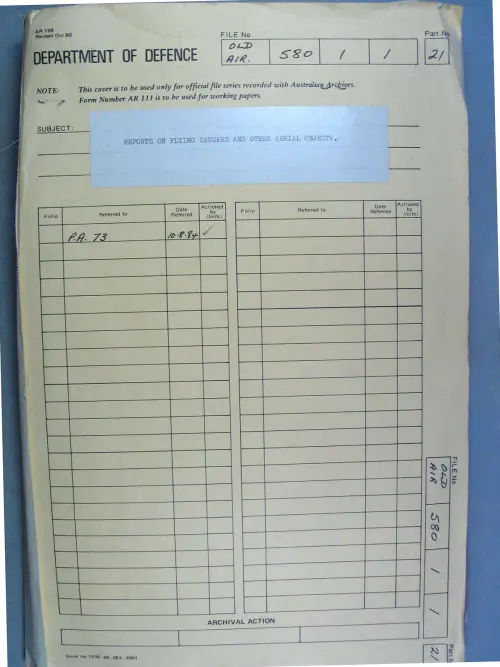 AR 198
Revised Oct 80
FILE No
Part No
DEPARTMENT OF DEFENCE
OLD
AIR. 580 1 1 21
NOTE: This cover is to be used only for official file series recorded with Australian Archives.
Form Number AR 111 is to be used for working papers.
SUBJECT:
REPORTS ON FLYING SAUCERS AND OTHER AERIAL OBJECTS.
Folio Referred to Date Referred Actioned by (Initls) Folio Referred to Date Referred Actioned by (Initls)
P.A. 73 10.8.84 ✓
ARCHIVAL ACTION
FILE No
OLD
AIR 580 1 1
Part
21